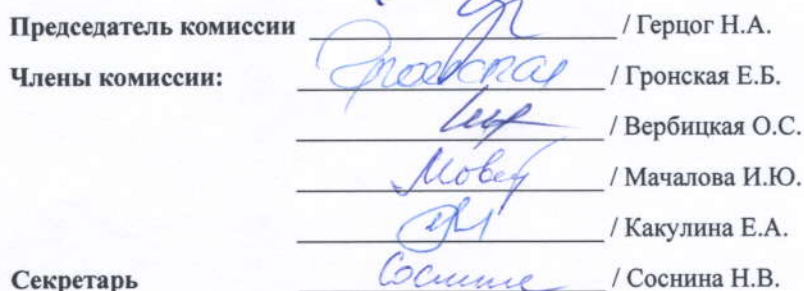 Председатель комиссии / Герцог Н.А.
Члены комиссии: / Гронская Е.Б.
/ Вербицкая О.С.
/ Мачалова И.Ю.
/ Какулина Е.А.
Секретарь / Соснина Н.В.